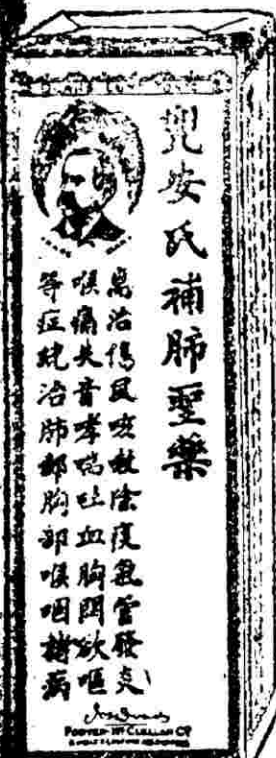 兜安氏補肺聖藥
專治傷風咳嗽除痰氣管發炎
喉痛失音哮喘吐血胸悶欲嘔
等症統治肺部胸部喉咽諸病
FOSTER-McCLELLAN Co